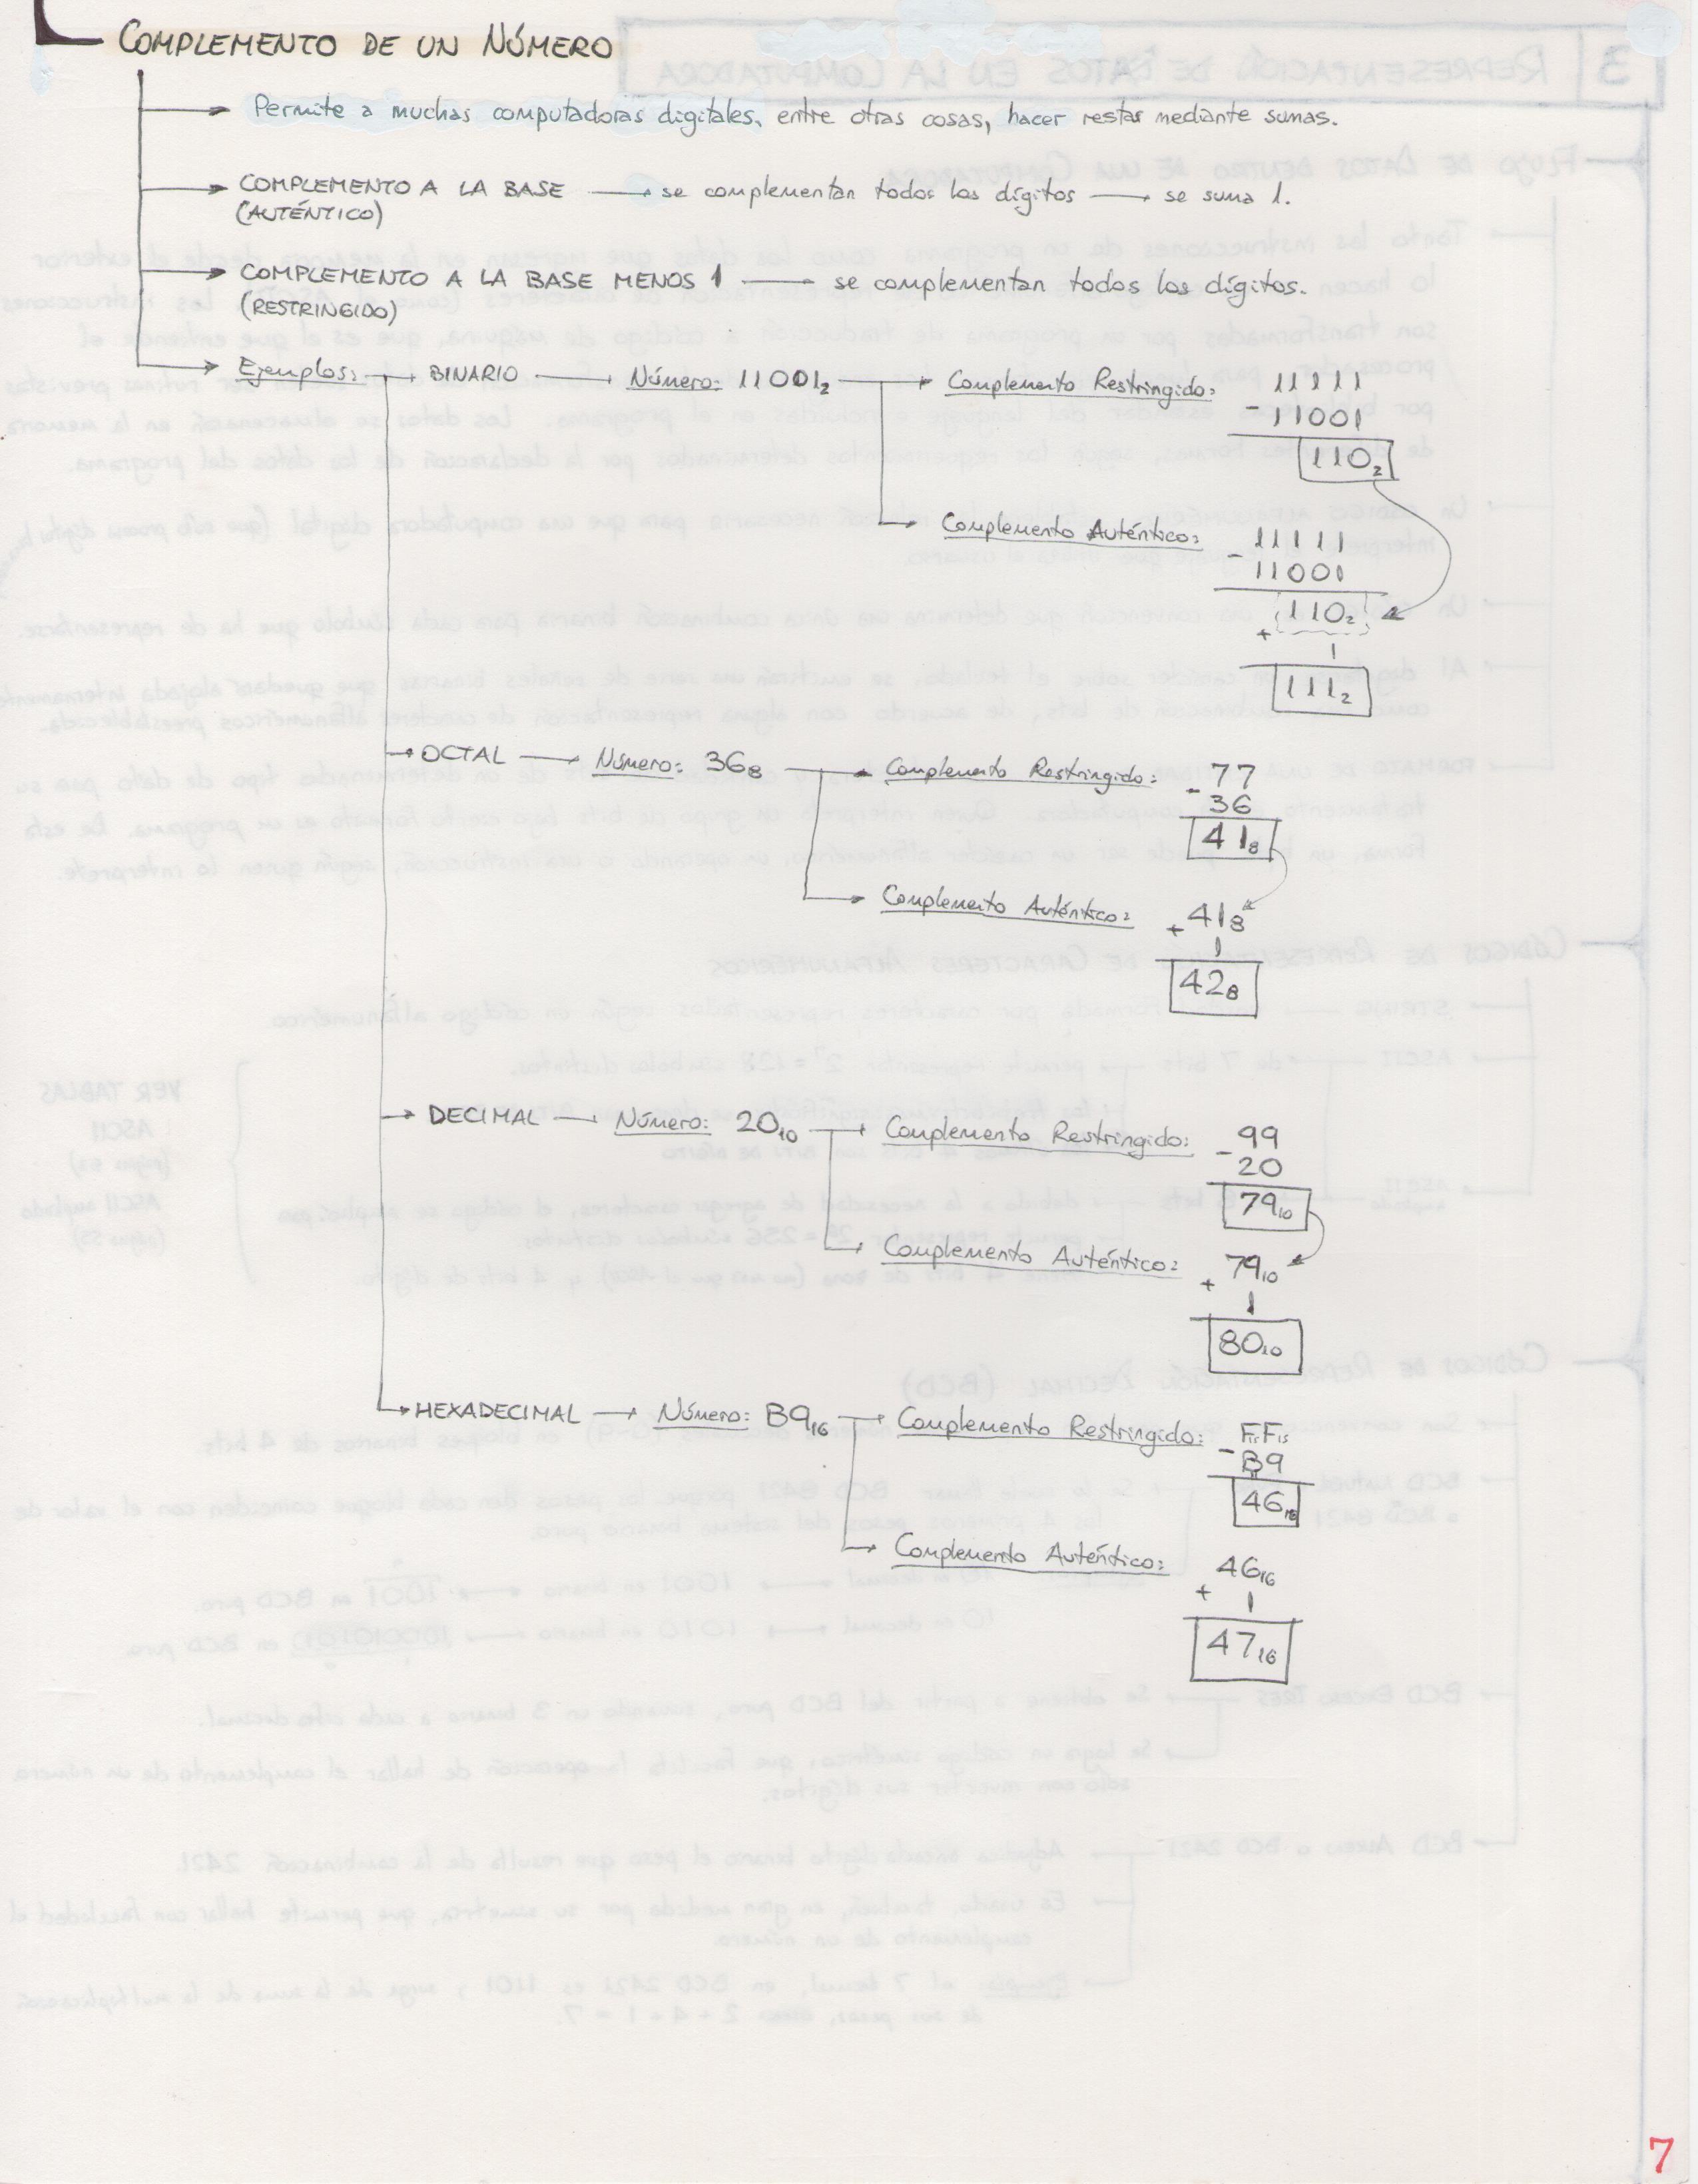 COMPLEMENTO DE UN NÚMERO
Permite a muchas computadoras digitales, entre otras cosas, hacer restas mediante sumas.
COMPLEMENTO A LA BASE → se complementan todos los dígitos → se suma 1.
(AUTÉNTICO)
COMPLEMENTO A LA BASE MENOS 1 → se complementan todos los dígitos.
(RESTRINGIDO)
Ejemplos: → BINARIO → Número: 11001₂ → Complemento Restringido: 11111
- 11001
110₂
Complemento Auténtico: 11111
- 11001
110₂
+ 1
111₂
OCTAL → Número: 36₈ → Complemento Restringido: 77
- 36
41₈
Complemento Auténtico: 41₈
+ 1
42₈
DECIMAL → Número: 20₁₀ → Complemento Restringido: 99
- 20
79₁₀
Complemento Auténtico: 79₁₀
+ 1
80₁₀
HEXADECIMAL → Número: B9₁₆ → Complemento Restringido: F₁₅F₁₅
- B9
46₁₆
Complemento Auténtico: 46₁₆
+ 1
47₁₆
7